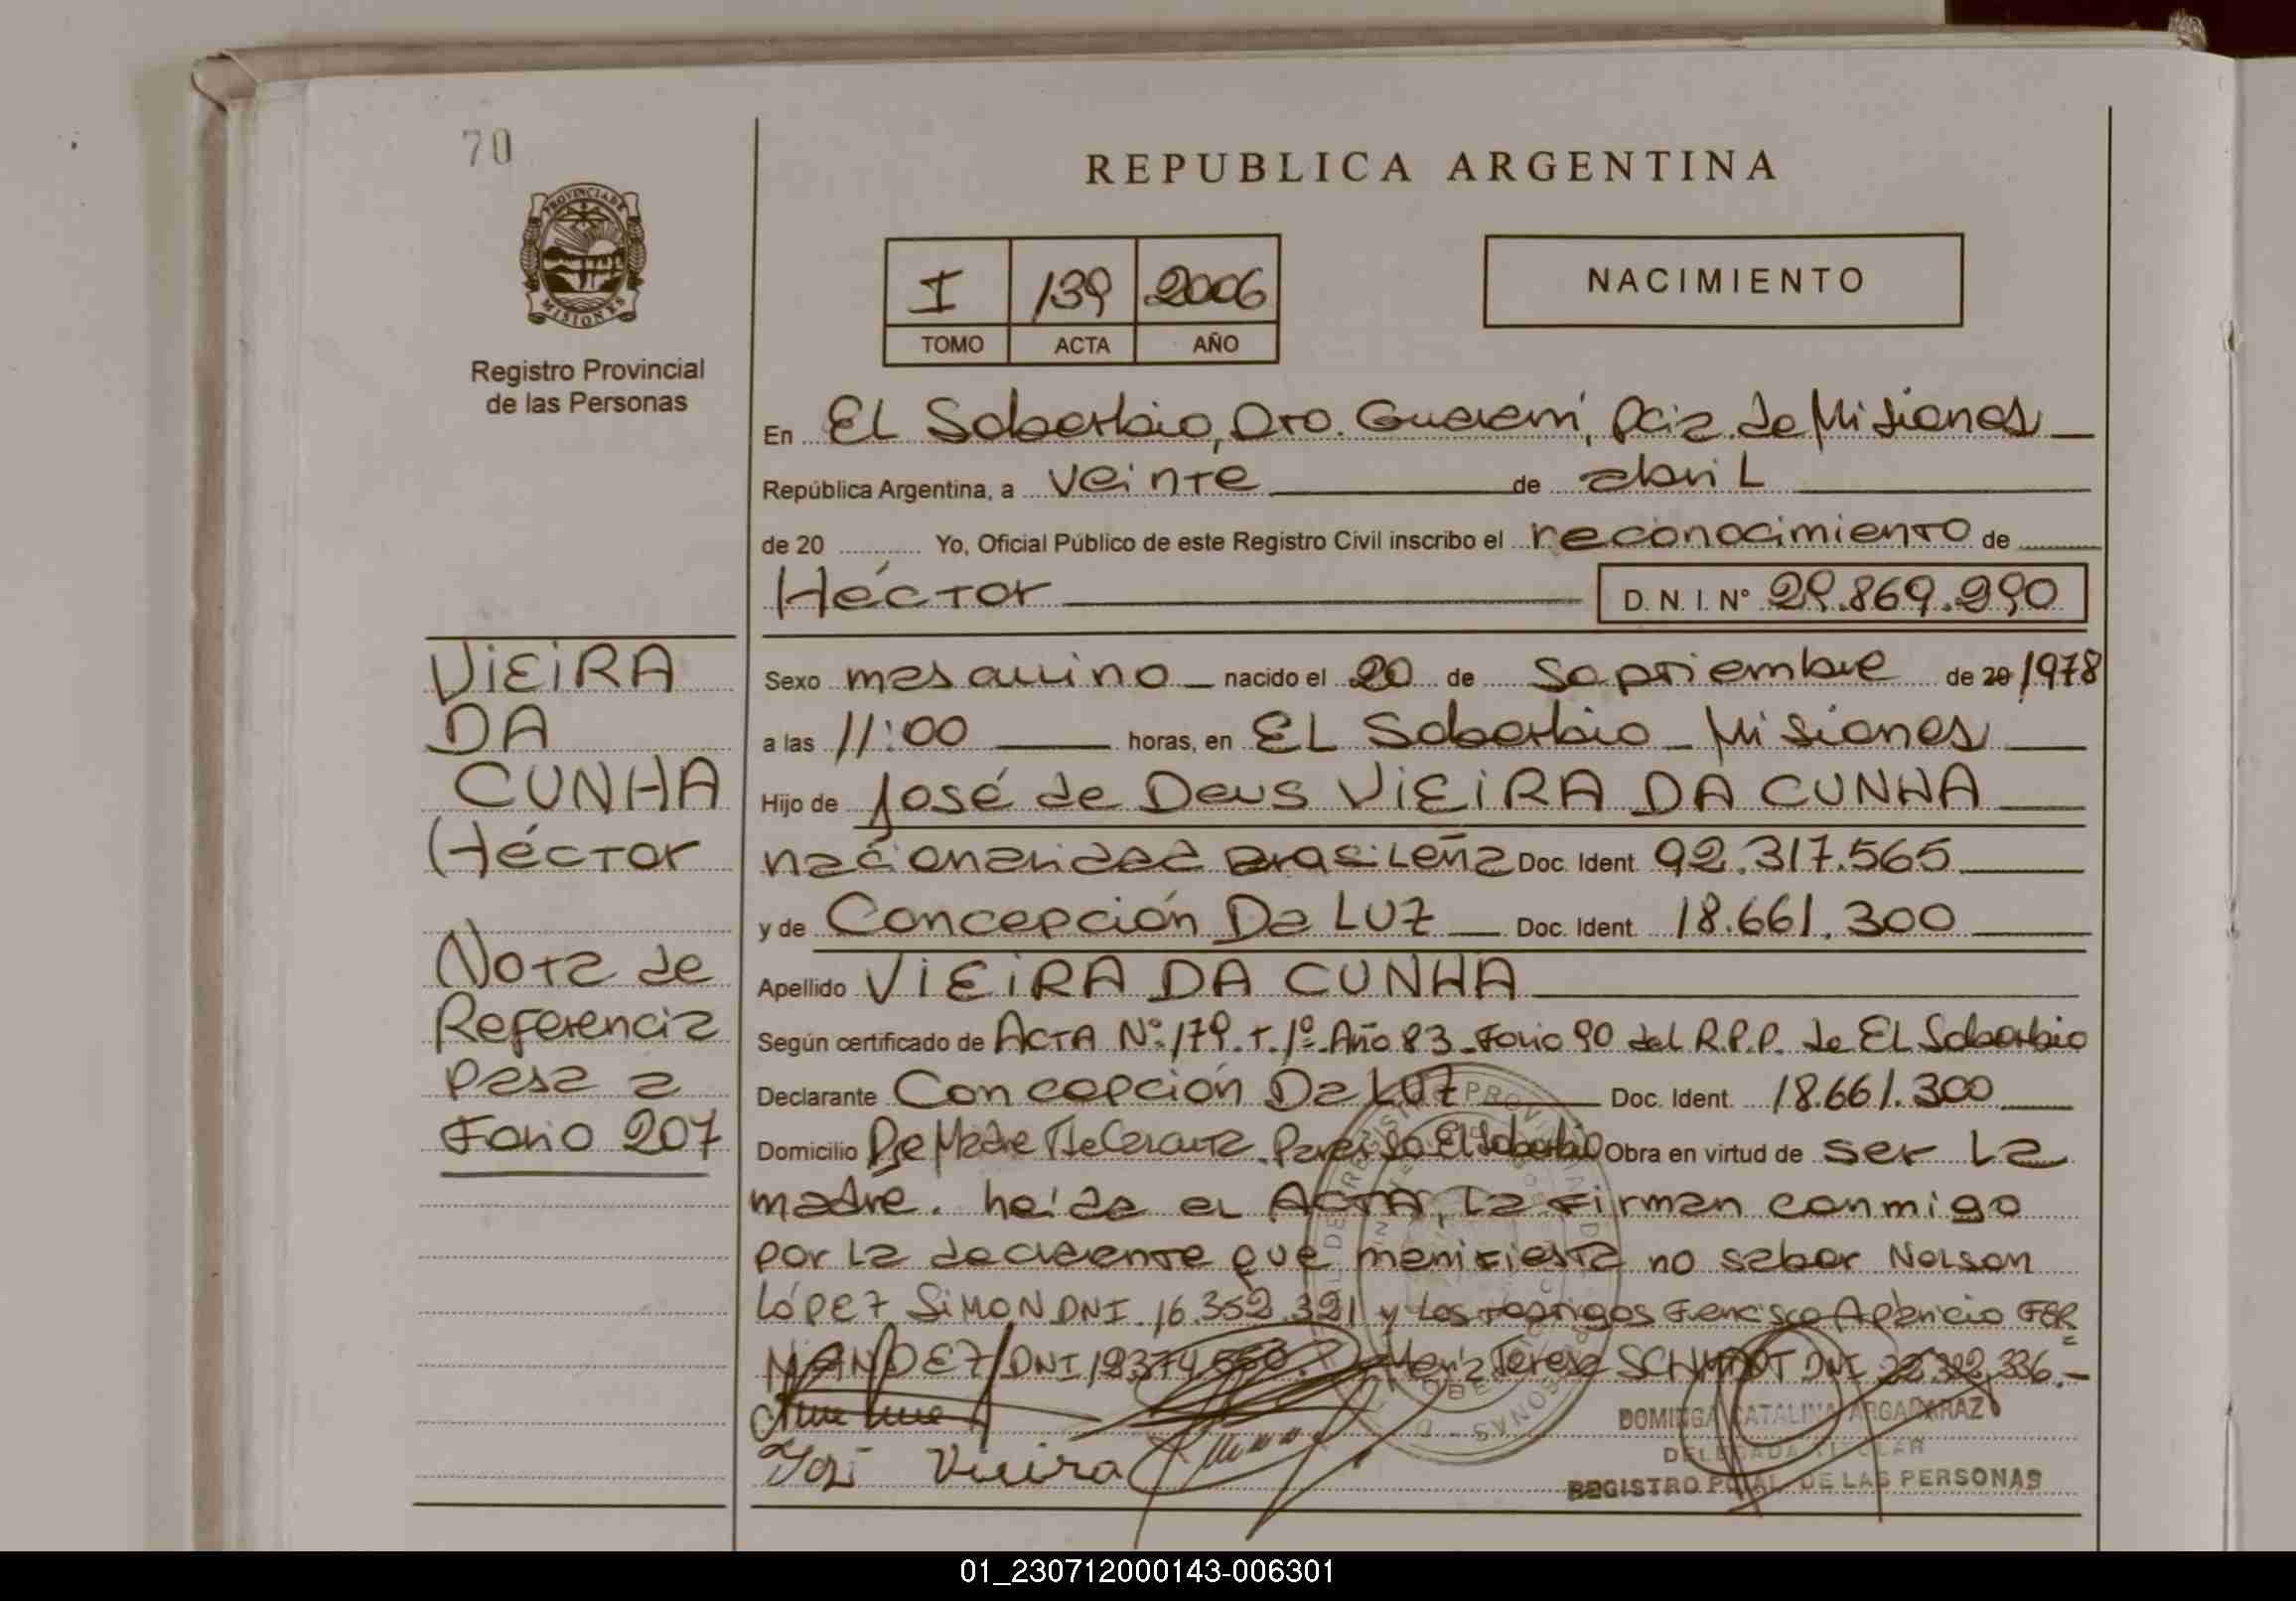 70
PROVINCIA DE
MISIONES
Registro Provincial
de las Personas
REPUBLICA ARGENTINA
I 139 2006
TOMO ACTA AÑO
NACIMIENTO
En El Soberbio, Dto. Guaraní, Pcia. de Misiones
República Argentina, a veinte de abril
de 20 Yo, Oficial Público de este Registro Civil inscribo el reconocimiento de
Héctor D.N.I. N° 29.869.990
VIEIRA
DA
CUNHA
Héctor
Nota de
Referencia
pasa a
Folio 207
Sexo masculino nacido el 20 de Septiembre de 20 1978
a las 11:00 horas, en El Soberbio - Misiones
Hijo de José de Deus VIEIRA DA CUNHA
nacionalidad brasileña Doc. Ident. 92.317.565
y de Concepción Da LUZ Doc. Ident. 18.661.300
Apellido VIEIRA DA CUNHA
Según certificado de ACTA N° 179. T. 1° Año 83 - Folio 90 del R.P.P. de El Soberbio
Declarante Concepción Da LUZ Doc. Ident. 18.661.300
Domicilio Pje Madre Paraíso El Soberbio Obra en virtud de ser la
madre. leída el ACTA, la firman conmigo
por la declarante que manifiesta no saber Nelson
LÓPEZ SIMON DNI 16.352.321 y los testigos Francisco Aparicio FER
NANDEZ DNI María Teresa SCHMIDT DNI
José Vieira
DOMINGA CATALINA ARGAÑARAZ
DELEGADA TITULAR
REGISTRO PCIAL. DE LAS PERSONAS
01_230712000143-006301